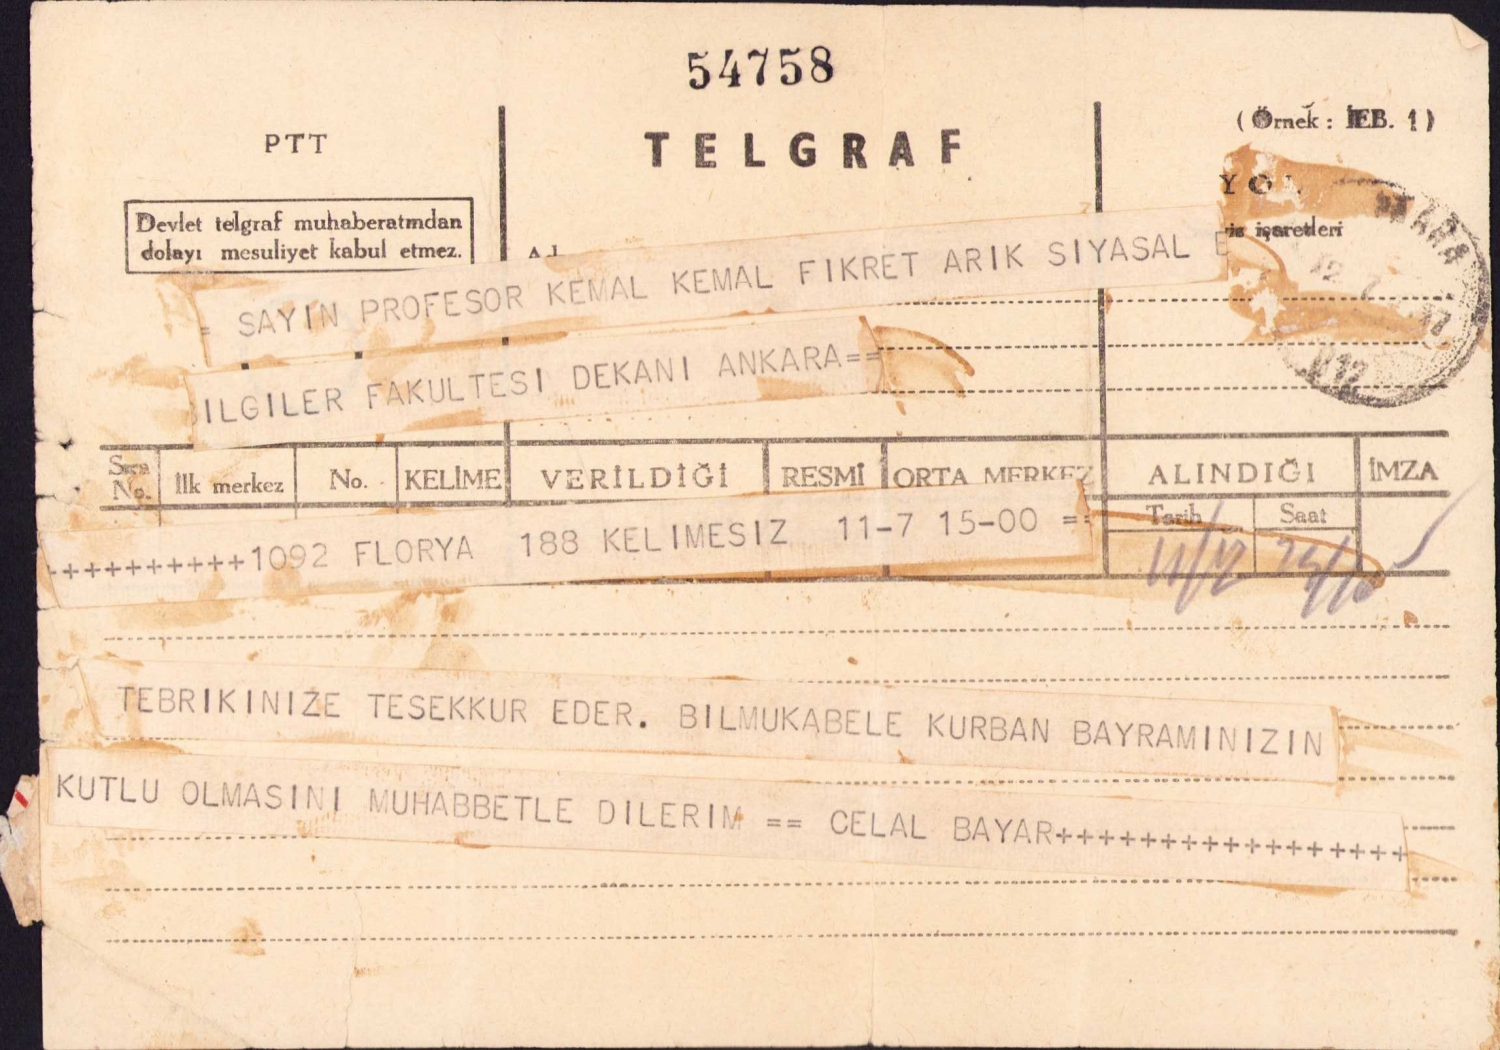 54758
PTT
TELGRAF
( Örnek : İEB. 1 )
Devlet telgraf muhaberatından
dolayı mesuliyet kabul etmez.
işaretleri
= SAYIN PROFESOR KEMAL KEMAL FIKRET ARIK SIYASAL
ILGILER FAKULTESI DEKANI ANKARA==
Sıra No.
İlk merkez
No.
KELİME
VERİLDİĞİ
RESMİ
ORTA MERKEZ
ALINDIĞI
İMZA
Tarih
Saat
++++++++++1092 FLORYA 188 KELIMESIZ 11-7 15-00 ==
TEBRIKINIZE TESEKKUR EDER. BILMUKABELE KURBAN BAYRAMINIZIN
KUTLU OLMASINI MUHABBETLE DILERIM == CELAL BAYAR+++++++++++++++++